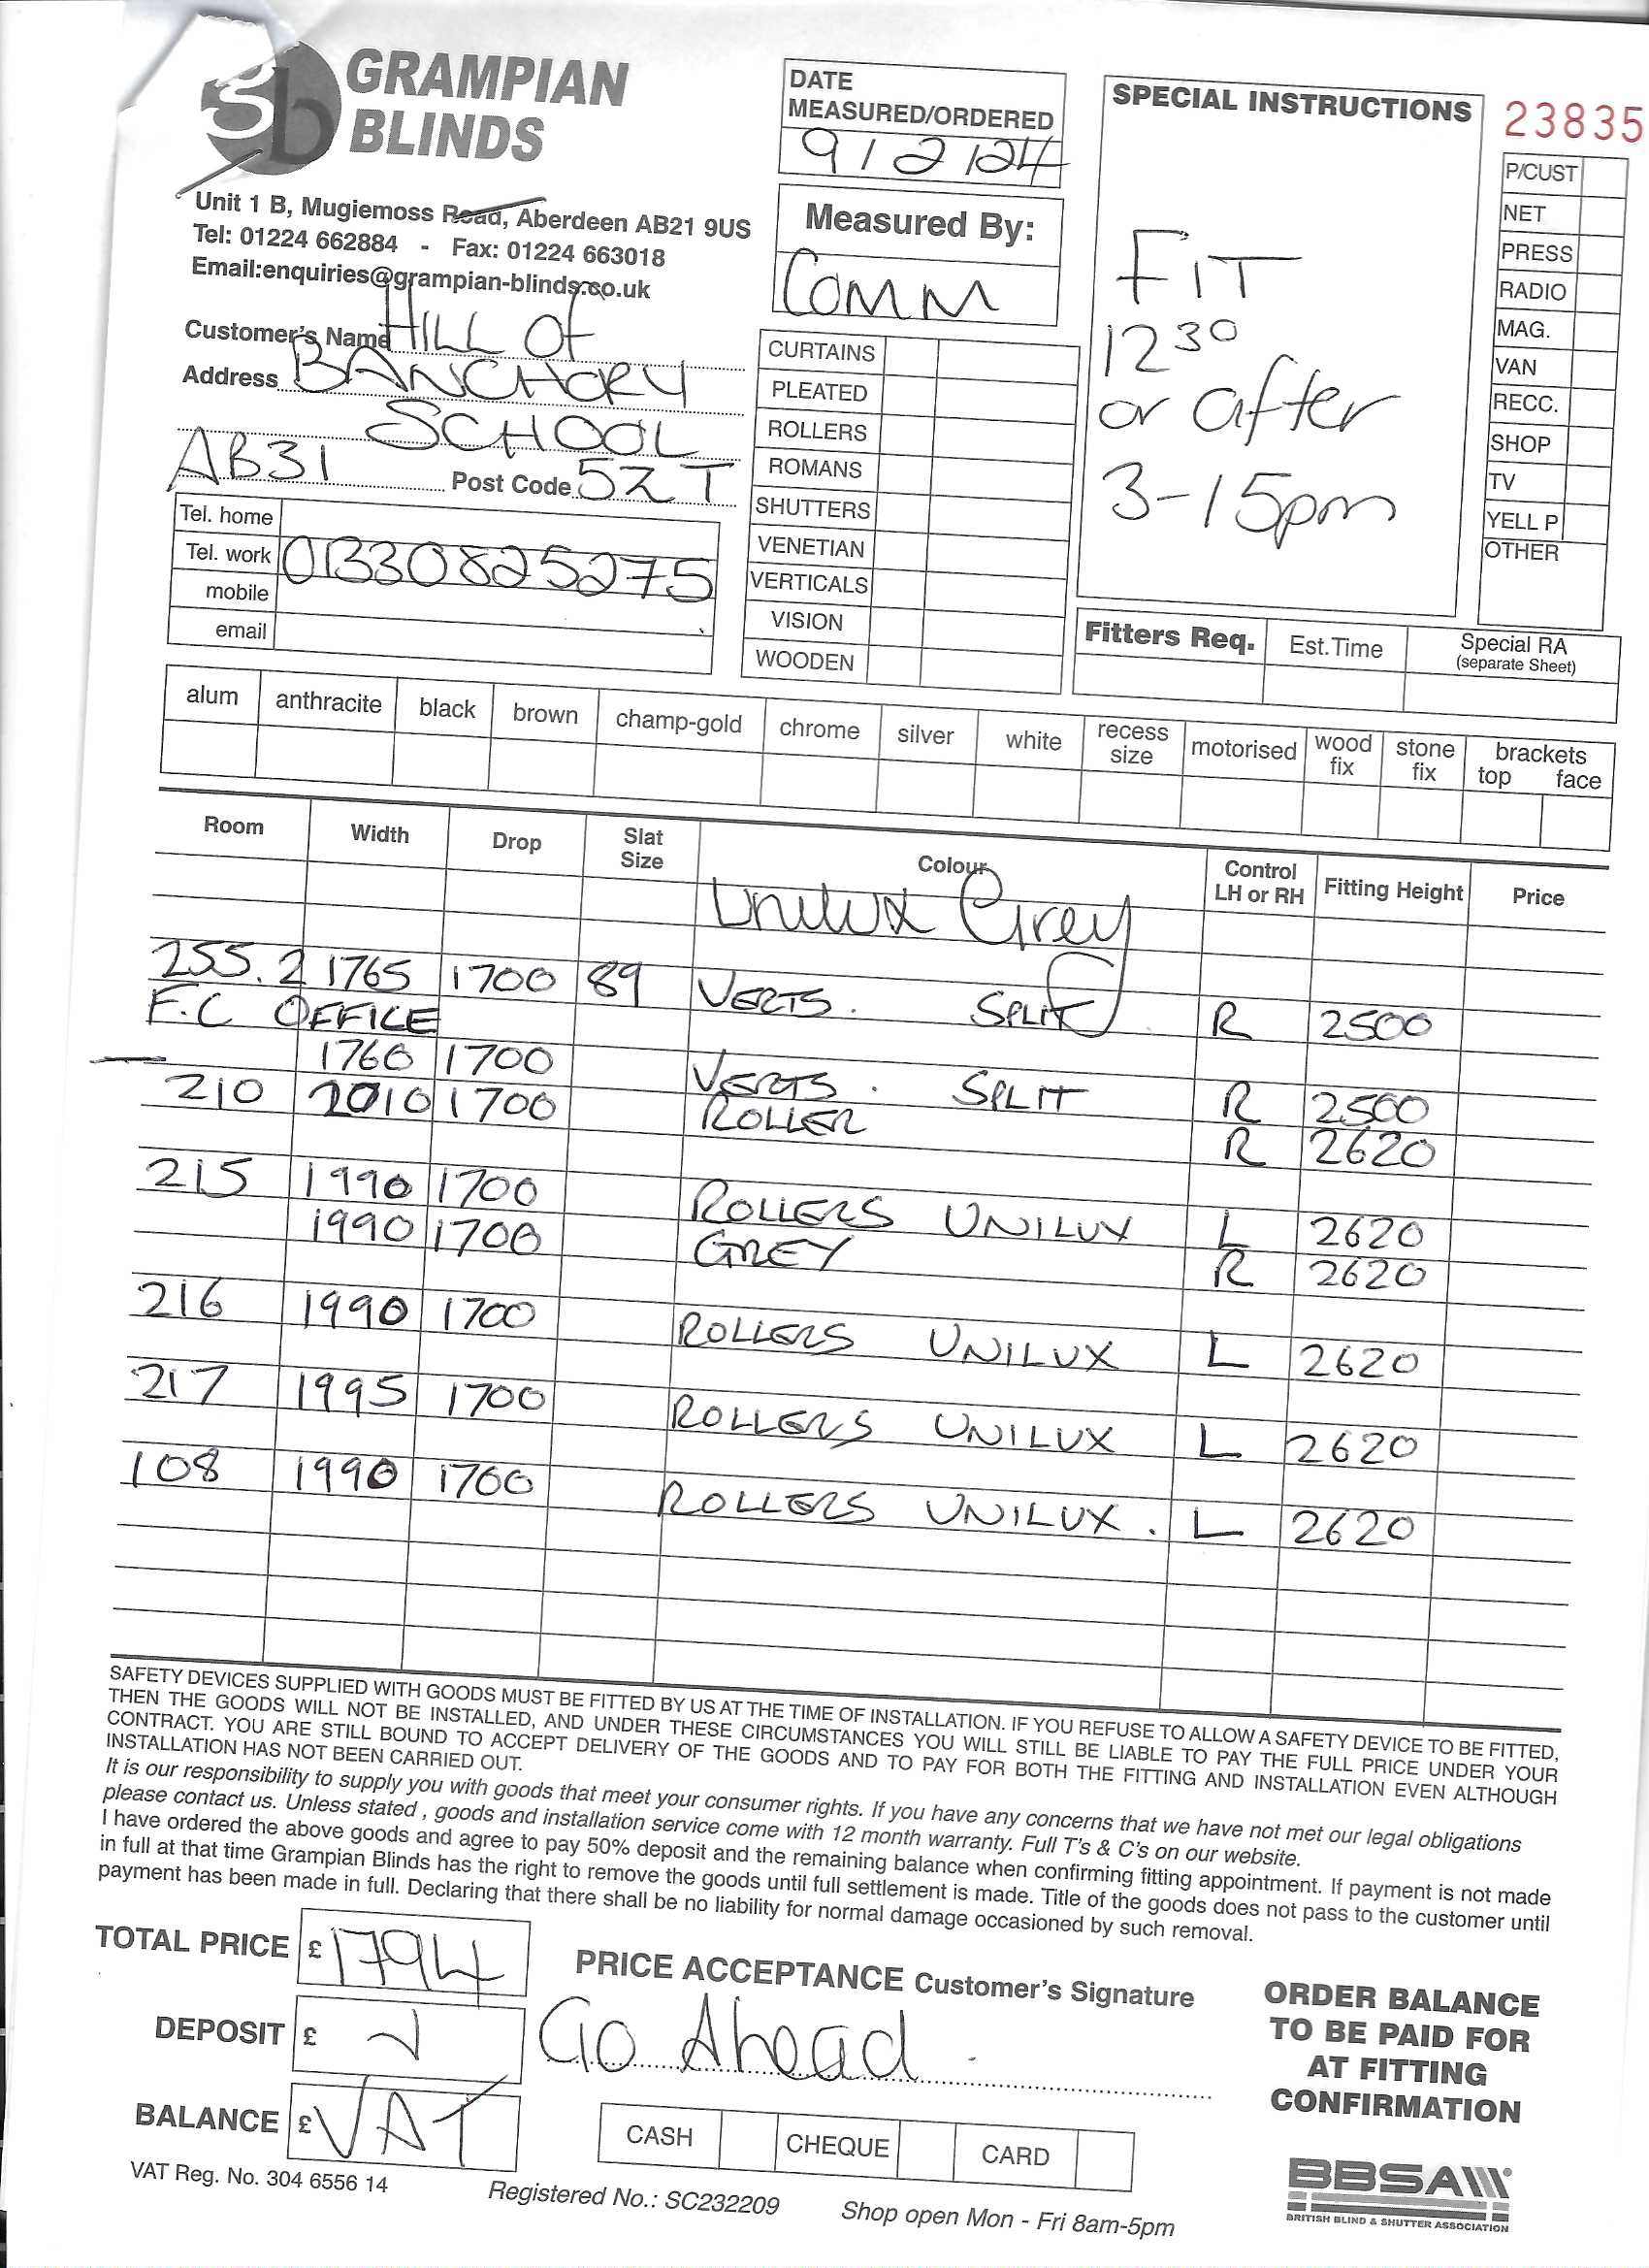 gb GRAMPIAN
BLINDS
Unit 1 B, Mugiemoss Road, Aberdeen AB21 9US
Tel: 01224 662884 - Fax: 01224 663018
Email:enquiries@grampian-blinds.co.uk
Customer's Name HILL Of
Address BANCHORY
SCHOOL
AB31 Post Code 5ZT
Tel. home
Tel. work 01330825275
mobile
email
DATE
MEASURED/ORDERED
9/2/24
Measured By:
COMM
CURTAINS
PLEATED
ROLLERS
ROMANS
SHUTTERS
VENETIAN
VERTICALS
VISION
WOODEN
SPECIAL INSTRUCTIONS
FIT
12 30
or after
3-15pm
23835
P/CUST
NET
PRESS
RADIO
MAG.
VAN
RECC.
SHOP
TV
YELL P
OTHER
Fitters Req. Est.Time Special RA
(separate Sheet)
alum anthracite black brown champ-gold chrome silver white recess size motorised wood fix stone fix brackets top face
Room Width Drop Slat Size Colour Control LH or RH Fitting Height Price
Unilux Grey
255.2 1765 1700 89 VERTS. SPLIT R 2500
F.C OFFICE
1760 1700 VERTS. SPLIT R 2500
210 2010 1700 ROLLER R 2620
215 1990 1700 ROLLERS UNILUX L 2620
1990 1700 GREY R 2620
216 1990 1700 ROLLERS UNILUX L 2620
217 1995 1700 ROLLERS UNILUX L 2620
108 1990 1700 ROLLERS UNILUX. L 2620
SAFETY DEVICES SUPPLIED WITH GOODS MUST BE FITTED BY US AT THE TIME OF INSTALLATION. IF YOU REFUSE TO ALLOW A SAFETY DEVICE TO BE FITTED,
THEN THE GOODS WILL NOT BE INSTALLED, AND UNDER THESE CIRCUMSTANCES YOU WILL STILL BE LIABLE TO PAY THE FULL PRICE UNDER YOUR
CONTRACT. YOU ARE STILL BOUND TO ACCEPT DELIVERY OF THE GOODS AND TO PAY FOR BOTH THE FITTING AND INSTALLATION EVEN ALTHOUGH
INSTALLATION HAS NOT BEEN CARRIED OUT.
It is our responsibility to supply you with goods that meet your consumer rights. If you have any concerns that we have not met our legal obligations
please contact us. Unless stated , goods and installation service come with 12 month warranty. Full T's & C's on our website.
I have ordered the above goods and agree to pay 50% deposit and the remaining balance when confirming fitting appointment. If payment is not made
in full at that time Grampian Blinds has the right to remove the goods until full settlement is made. Title of the goods does not pass to the customer until
payment has been made in full. Declaring that there shall be no liability for normal damage occasioned by such removal.
TOTAL PRICE £ 1794
DEPOSIT £
BALANCE £ VAT
PRICE ACCEPTANCE Customer's Signature
Go Ahead.
CASH CHEQUE CARD
ORDER BALANCE
TO BE PAID FOR
AT FITTING
CONFIRMATION
VAT Reg. No. 304 6556 14
Registered No.: SC232209
Shop open Mon - Fri 8am-5pm
BBSA
BRITISH BLIND & SHUTTER ASSOCIATION